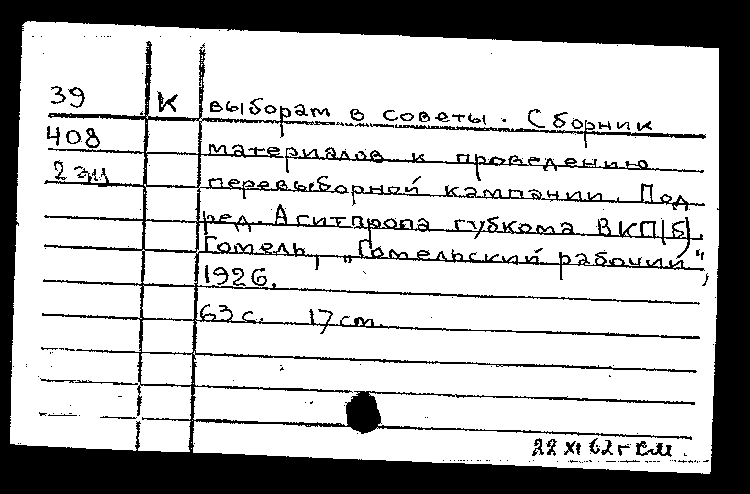 39 К выборам в советы. Сборник
408 материалов к проведению
2 эк перевыборной кампании. Под
ред. Агитпропа губкома ВКП(б).
Гомель, „Гомельский рабочий",
1926.
63 с. 17 см.
22 XI 62 г